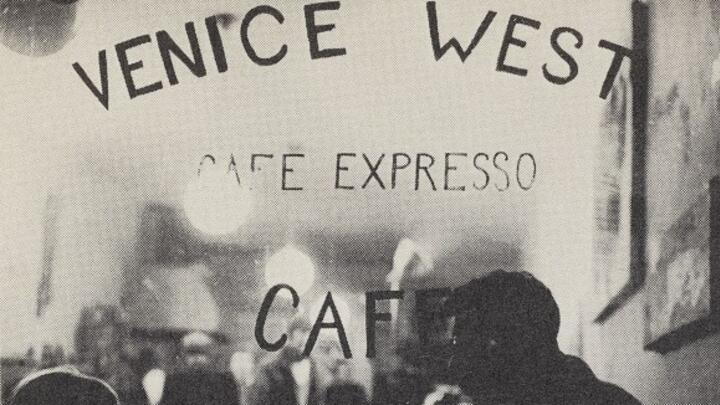 VENICE WEST
CAFE EXPRESSO
CAFE